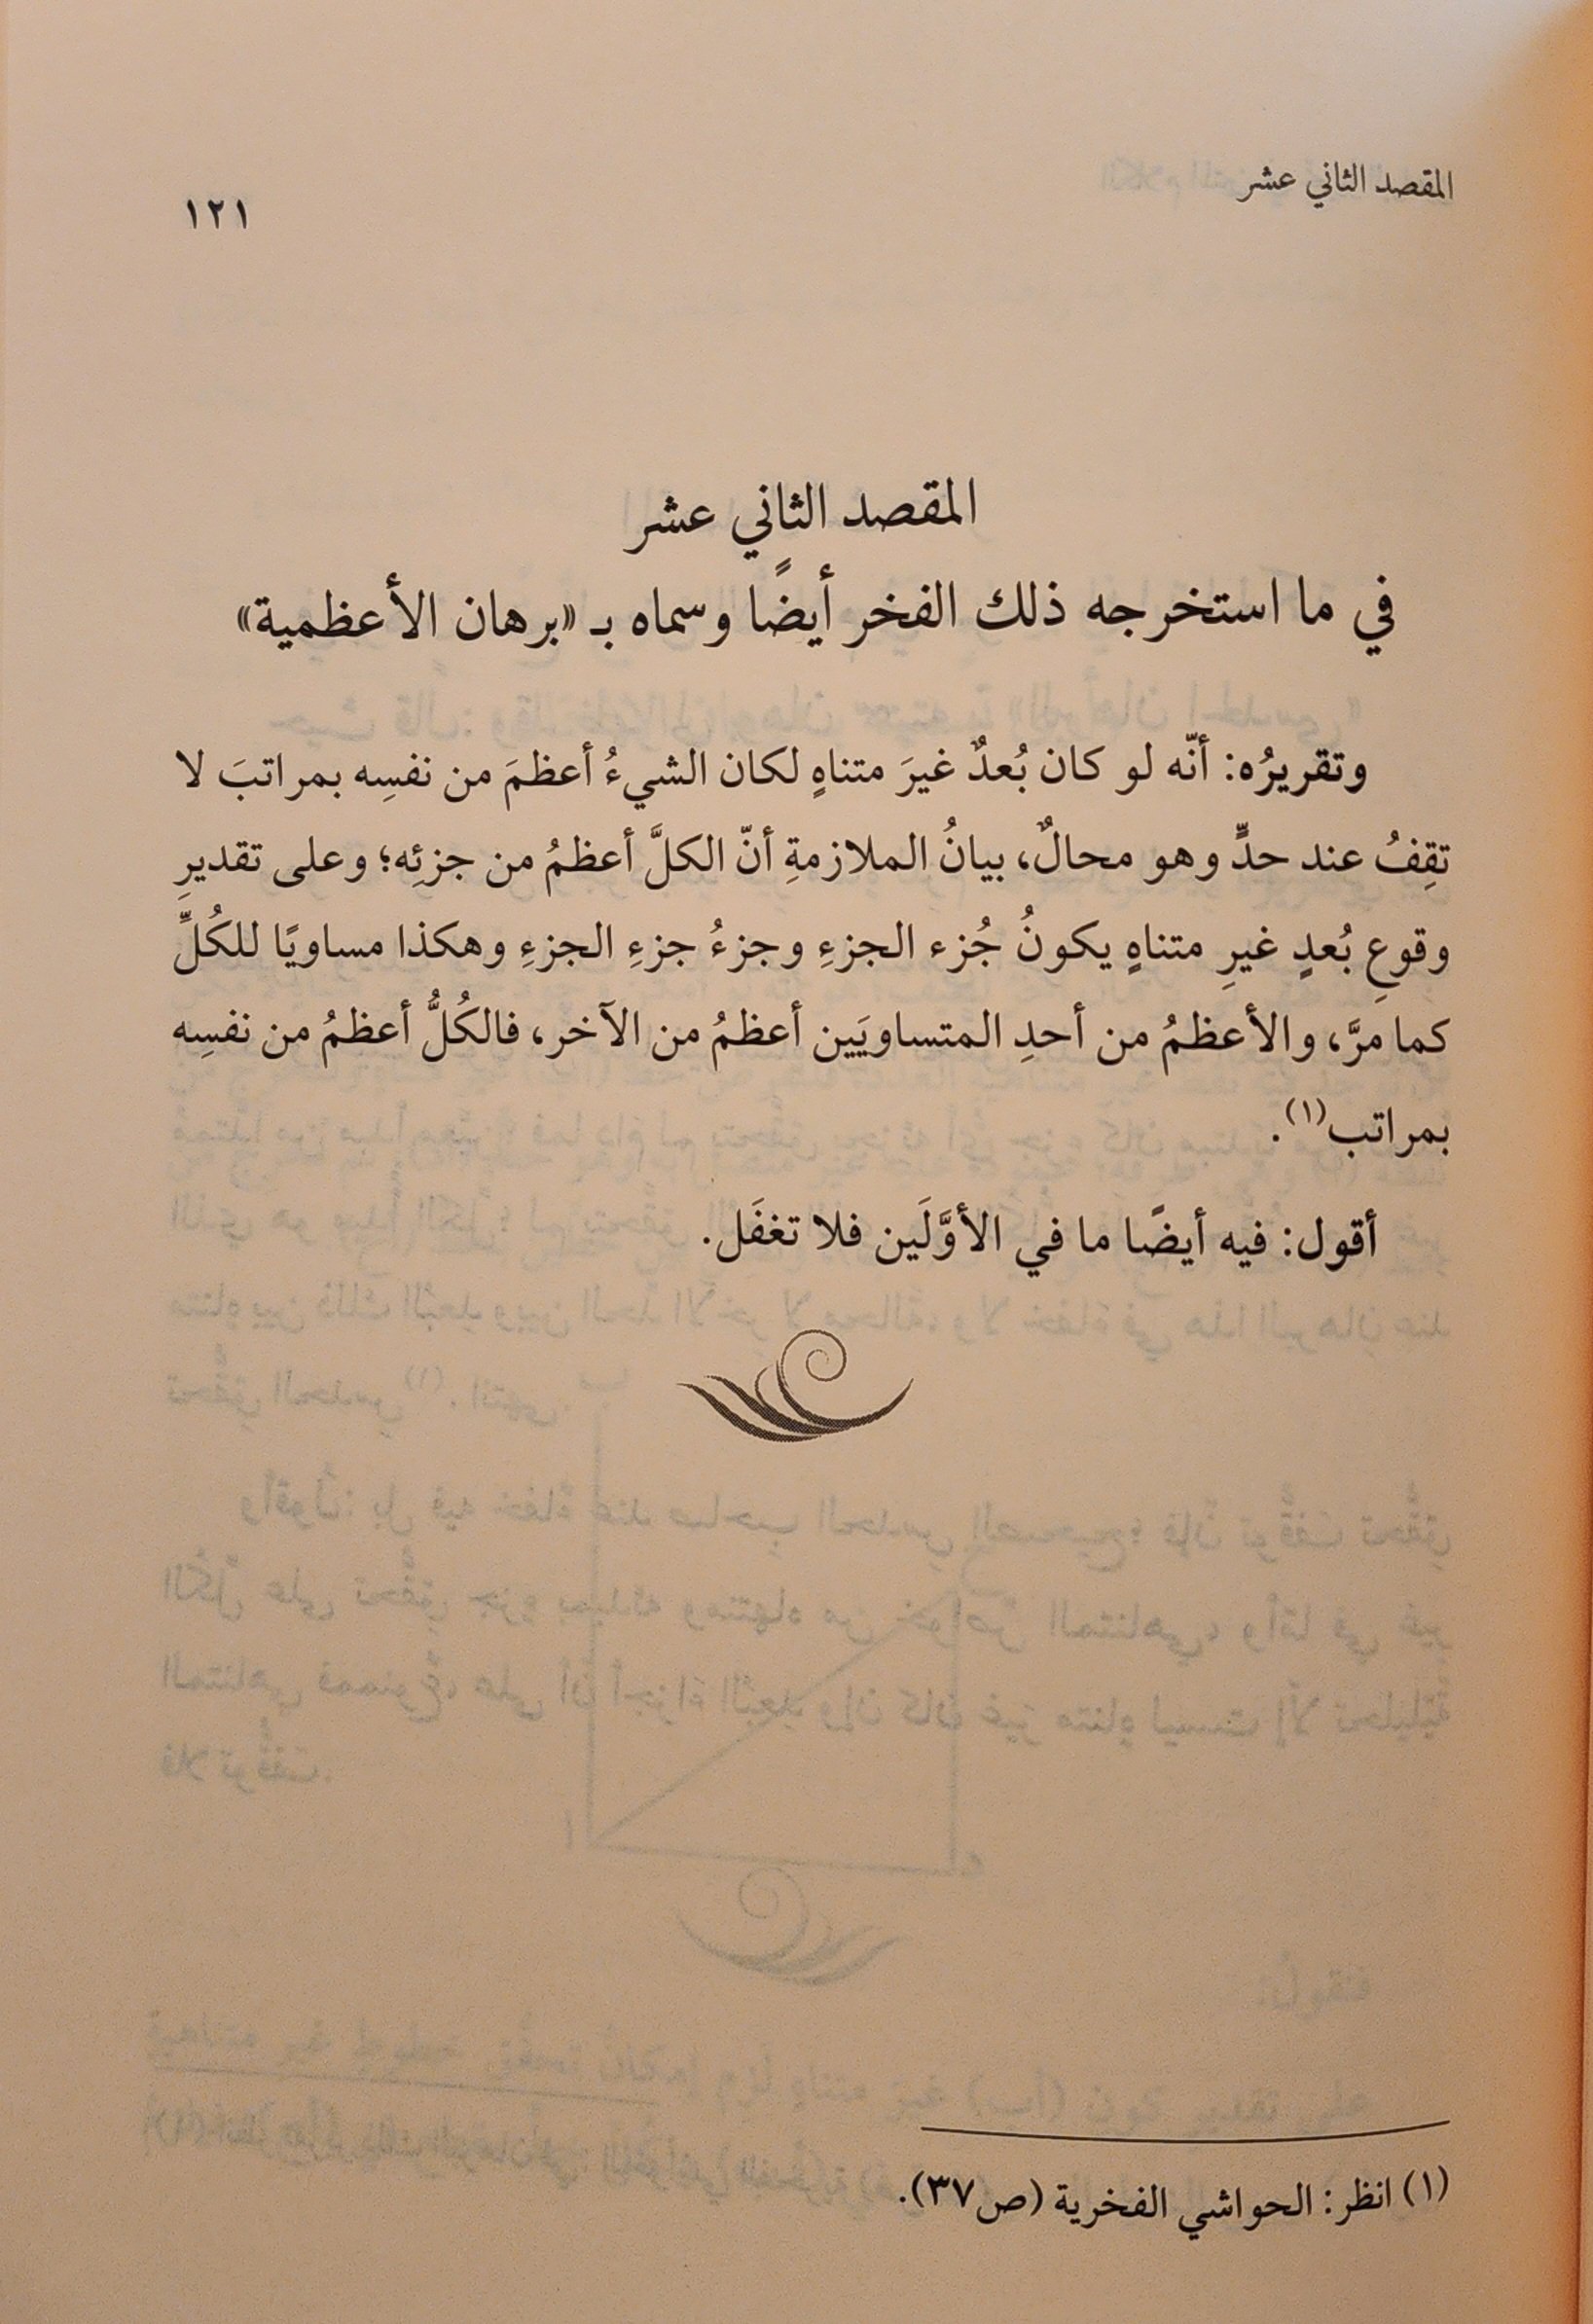 المقصد الثاني عشر
١٢١
المقصد الثاني عشر
في ما استخرجه ذلك الفخر أيضًا وسماه بـ «برهان الأعظمية»
وتقريرُه: أنّه لو كان بُعدٌ غيرَ متناهٍ لكان الشيءُ أعظمَ من نفسِه بمراتبَ لا
تقِفُ عند حدٍّ وهو محالٌ، بيانُ الملازمةِ أنّ الكلَّ أعظمُ من جزئِه؛ وعلى تقديرِ
وقوعِ بُعدٍ غيرِ متناهٍ يكونُ جُزء الجزءِ وجزءُ جزءِ الجزءِ وهكذا مساويًا للكُلِّ
كما مرَّ، والأعظمُ من أحدِ المتساويَين أعظمُ من الآخر، فالكُلُّ أعظمُ من نفسِه
بمراتب(١).
أقول: فيه أيضًا ما في الأوَّلَين فلا تغفَل.
(١) انظر: الحواشي الفخرية (ص٣٧).